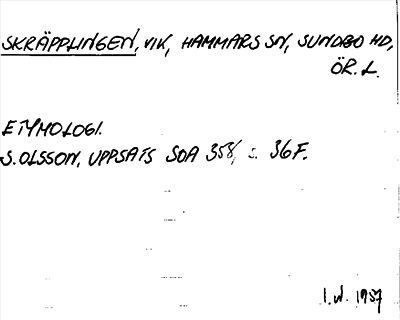 SKRÄPPLINGEN, VIK, HAMMARS SN, SUNDBO HD,
ÖR. L.
ETYMOLOGI.
S. OLSSON, UPPSATS SOA 358, s. 36 F.
1957